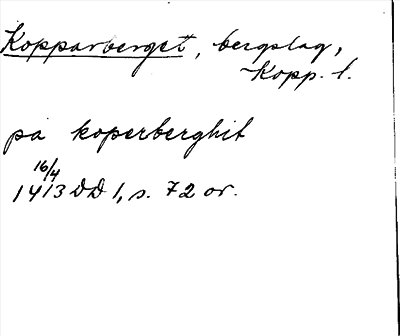 Kopparberget, bergslag,
Kopp. l.
på koperberghit
16/4
1413 DD 1, s. 72 or.